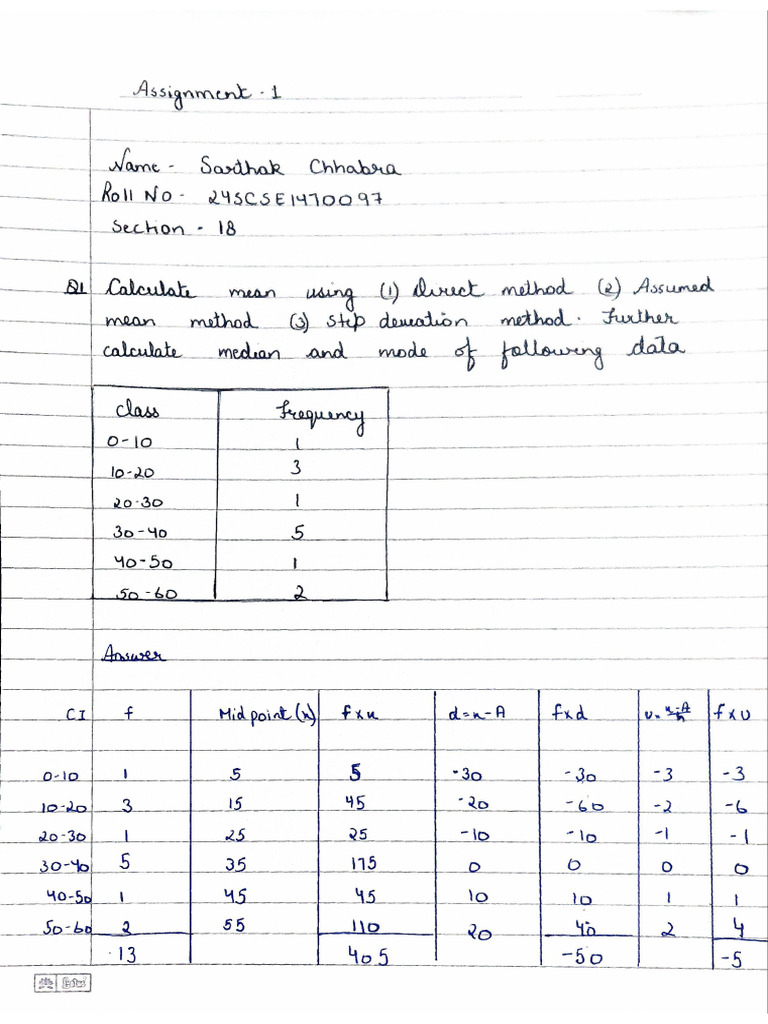 Assignment - 1
Name - Sarthak Chhabra
Roll No - 24SCSE1470097
Section - 18
Q1 Calculate mean using (1) Direct method (2) Assumed
mean method (3) step deveation method. Further
calculate median and mode of following data
Class Frequency
0-10 1
10-20 3
20-30 1
30-40 5
40-50 1
50-60 2
Answer
CI f Mid point (x) f x x d = x - A f x d u = x-A/h f x u
0-10 1 5 5 -30 -30 -3 -3
10-20 3 15 45 -20 -60 -2 -6
20-30 1 25 25 -10 -10 -1 -1
30-40 5 35 175 0 0 0 0
40-50 1 45 45 10 10 1 1
50-60 2 55 110 20 40 2 4
13 405 -50 -5